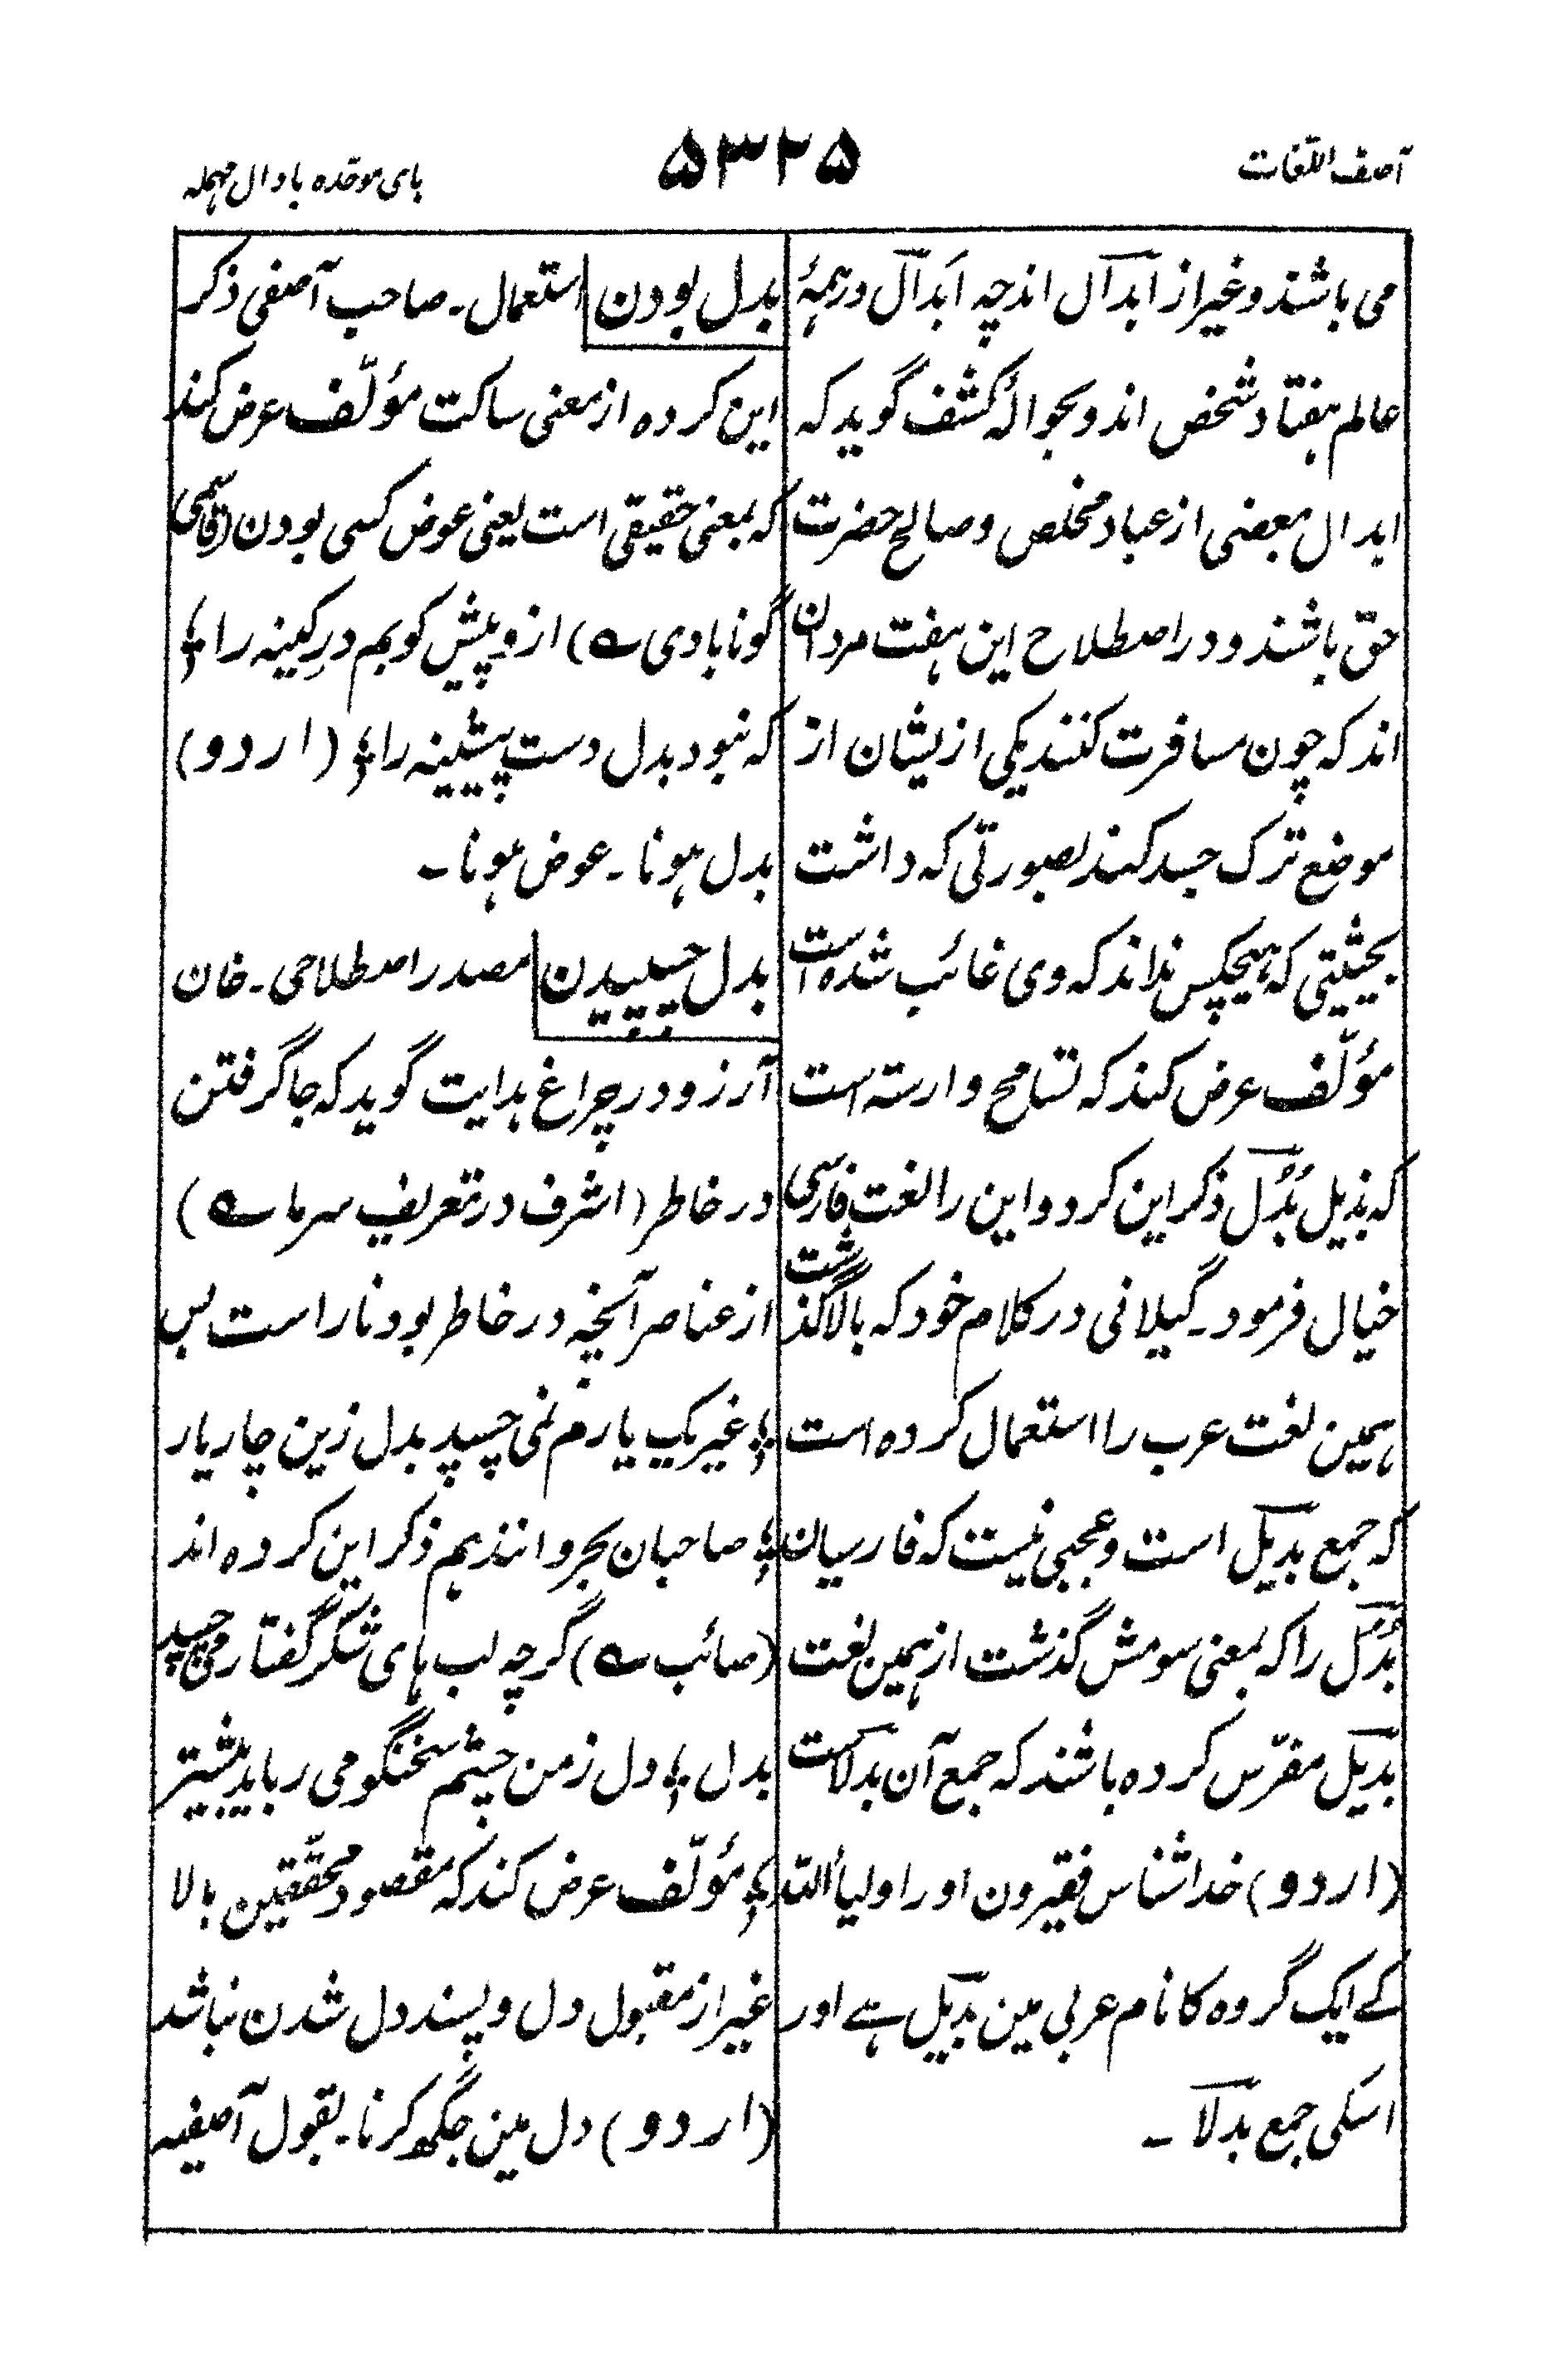 آصف اللّغات
۵۳۲۵
بای موحّده با دال مہملہ
می باشند و غیر از ابدال اند چہ ابدال در ہمۂ
عالم ہفتاد شخص اند و بحوالۂ کشف گوید کہ
ابدال بعضی از عباد مخلص و صالح حضرت
حق باشند و در اصطلاح این ہفت مردان
اند کہ چون مسافرت کنند یکی از یشان از
موضع ترک جسد کند بصورتی کہ داشت
بحیثیتی کہ ہیچکس نداند کہ وی غائب شدہ است
مؤلّف عرض کند کہ تسامح وارستہ است
کہ بذیل بُدُل ذکر این کرد و این را لغت فارسی
خیال فرمود۔ گیلانی در کلام خود کہ بالا گذشت
ہمین لغت عرب را استعمال کردہ است
کہ جمع بدیل است و عجبی نیست کہ فارسیان
بُدُل را کہ بمعنی سومش گذشت از ہمین لغت
بدیل مفرّس کردہ باشند کہ جمع آن بدلاست
(اردو) خداشناس فقیرون اور اولیأ اللہ
کے ایک گروہ کا نام عربی مین بدیل ہے اور
اسکی جمع بدلا ۔
بدل بودن استعمال۔ صاحب آصفی ذکر
این کردہ از معنی ساکت مؤلّف عرض کند
کہ بمعنی حقیقی است یعنی عوض کسی بودن (قاسمی
گونابادی ؎) ازو پیش کوبم درِ کینہ را ؛
کہ نبود بدل دست پیشینہ را ؛ (اردو)
بدل ہونا۔ عوض ہونا۔
بدل چسپیدن مصدر اصطلاحی۔ خان
آرزو در چراغ ہدایت گوید کہ جا گرفتن
در خاطر (اشرف در تعریف سرما ؎)
از عناصر آنچہ در خاطر بود نار است بس
؛ غیر یک یارم نمی چسپد بدل زین چار یار
؛ صاحبان بحر و انند ہم ذکر این کردہ اند
(صائب ؎) گرچہ لب ہای شکر گفتار می چسپد
بدل ؛ دل ز من چشم سخنگو می رباید بیشتر
؛ مؤلّف عرض کند کہ مقصود محقّقین بالا
غیر از مقبول دل و پسند دل شدن نباشد
(اردو) دل مین جگہ کرنا۔ بقول آصفیہ